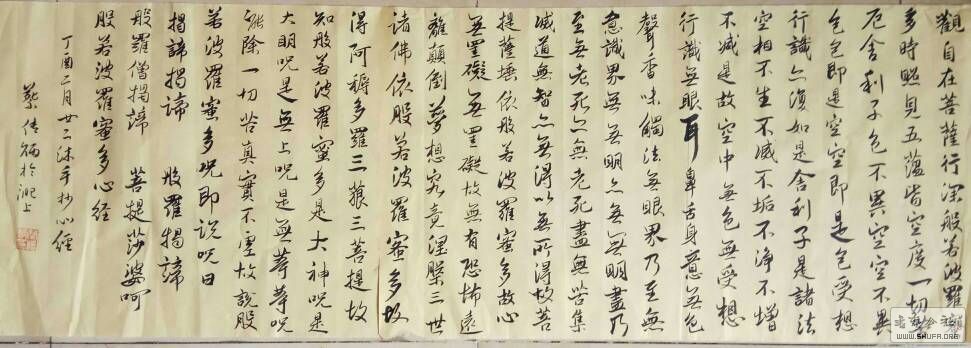 觀自在菩薩行深般若波羅蜜
多時照見五蘊皆空度一切苦
厄舍利子色不異空空不異
色色即是空空即是色受想
行識亦復如是舍利子是諸法
空相不生不滅不垢不淨不增
不減是故空中無色無受想
行識無眼耳鼻舌身意無色
聲香味觸法無眼界乃至無
意識界無無明亦無無明盡乃
至無老死亦無老死盡無苦集
滅道無智亦無得以無所得故菩
提薩埵依般若波羅蜜多故心
無罣礙無罣礙故無有恐怖遠
離顛倒夢想究竟涅槃三世
諸佛依般若波羅蜜多故
得阿耨多羅三藐三菩提故
知般若波羅蜜多是大神咒是
大明咒是無上咒是無等等咒
能除一切苦真實不虛故說般
若波羅蜜多咒即說咒曰
揭諦揭諦 般羅揭諦
般羅僧揭諦 菩提莎婆呵
般若波羅蜜多心经
丁酉二月廿二沐手抄心經
蔡传 於淝上
WWW.SHUFA.ORG